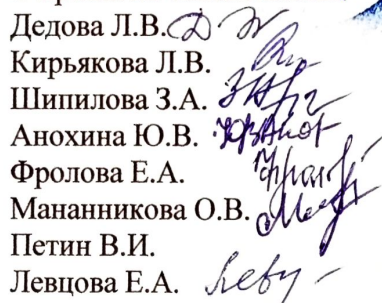 Дедова Л.В.
Кирьякова Л.В.
Шипилова З.А.
Анохина Ю.В.
Фролова Е.А.
Мананникова О.В.
Петин В.И.
Левцова Е.А.